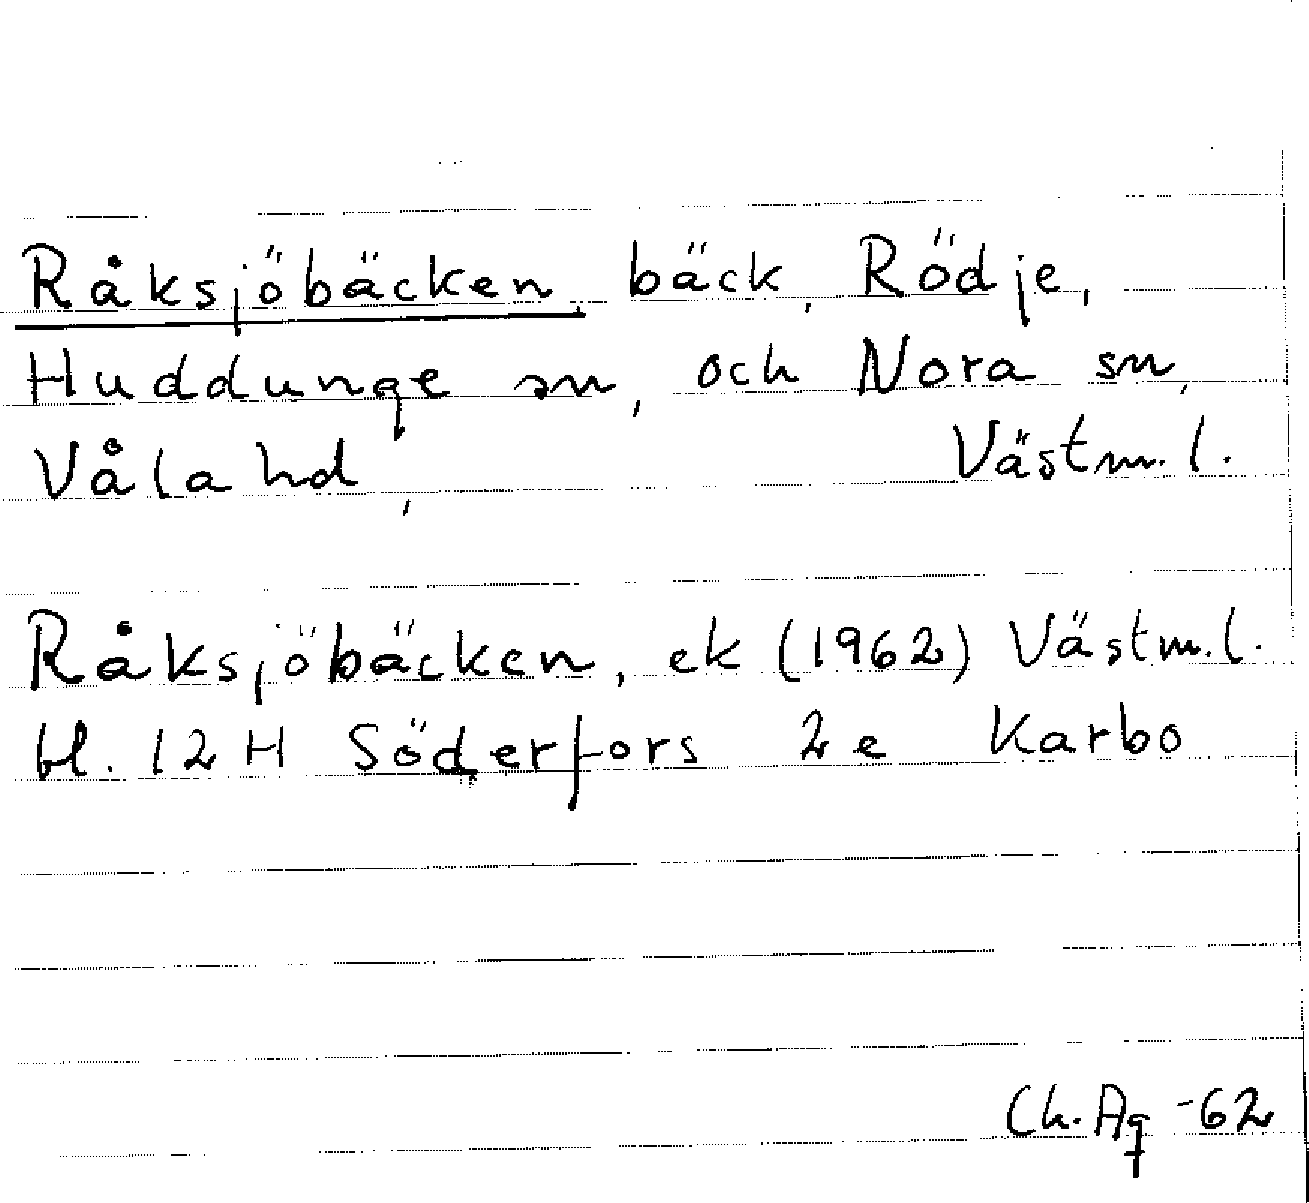 Råksjöbäcken, bäck, Rödje,
Huddunge sn, och Nora sn,
Våla hd, Västm. l.
Råksjöbäcken, ek (1962) Västm. l.
bl. 12 H Söderfors 2e Karbo
Ch. Ag -62